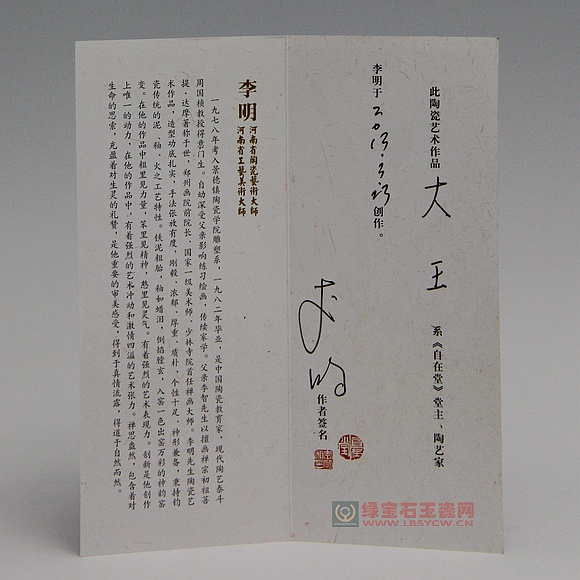 此陶瓷艺术作品 大王 系《自在堂》堂主、陶艺家
李明于 2013.3.23 创作。
作者签名
李明
河南省陶瓷藝术大师
河南省工藝美術大师
一九七八年考入景德镇陶瓷学院雕塑系，一九八二年毕业，是中国陶瓷教育家，现代陶艺泰斗
周国桢教授得意门生。自幼深受父亲影响练习绘画，传续家学。父亲李智先生以擅画禅宗初祖菩
提·达摩著称于世，郑州画院前院长、国家一级美术师，少林寺院首任禅画大师。李明先生陶瓷艺
术作品，造型功底扎实，手法张放有度，刚毅、浓郁、厚重、质朴、个性十足、神形兼备，秉持钧
瓷传统的泥、釉、火之工艺特性。铁泥粗胎，釉如蜡泪，倒焰膛玄，入窑一色出窑万彩的神韵窑
变。在他的作品中粗里见力量，笨里见精神，憨里见灵气。有着强烈的艺术表现力。创新是他创作
上唯一的动力，在他的作品中，有着强烈的艺术冲动和激情四溢的艺术张力。禅思盎然，包含着对
生命的思索，充盈着对生灵的礼赞，是他重要的审美感受，得到于真情流露，得道于自然而然。
绿宝石玉瓷网
WWW.LBSYCW.CN